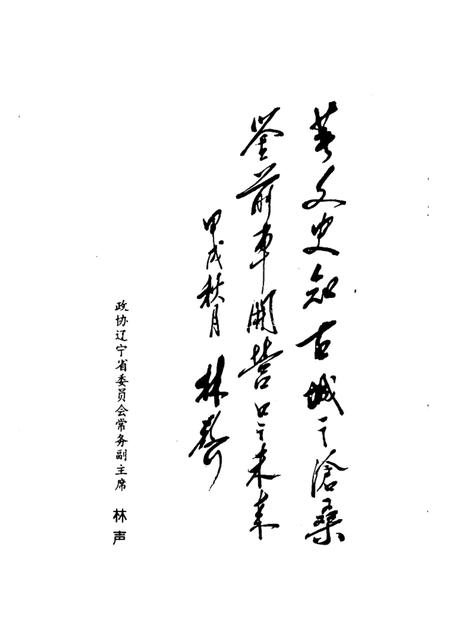 文史知古城之滄桑
鉴前車開營口之未来
甲戌秋月 林聲
政协辽宁省委员会常务副主席 林声